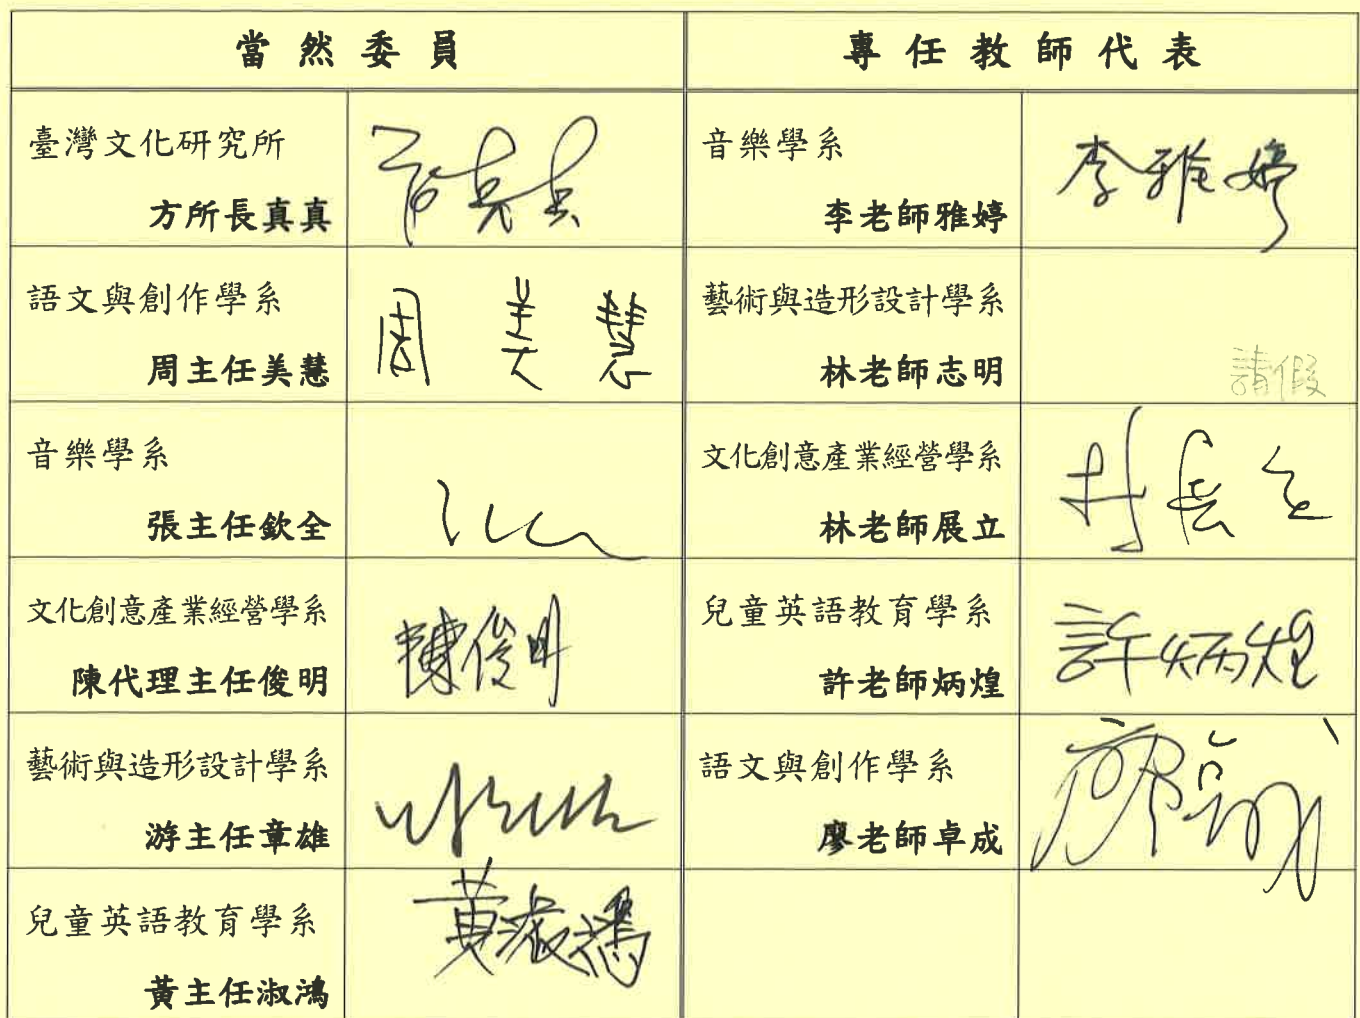 當然委員
專任教師代表
臺灣文化研究所
方所長真真
音樂學系
李老師雅婷
李雅婷
語文與創作學系
周主任美慧
周美慧
藝術與造形設計學系
林老師志明
請假
音樂學系
張主任欽全
文化創意產業經營學系
林老師展立
文化創意產業經營學系
陳代理主任俊明
陳俊明
兒童英語教育學系
許老師炳煌
許炳煌
藝術與造形設計學系
游主任章雄
語文與創作學系
廖老師卓成
兒童英語教育學系
黃主任淑鴻
黃淑鴻